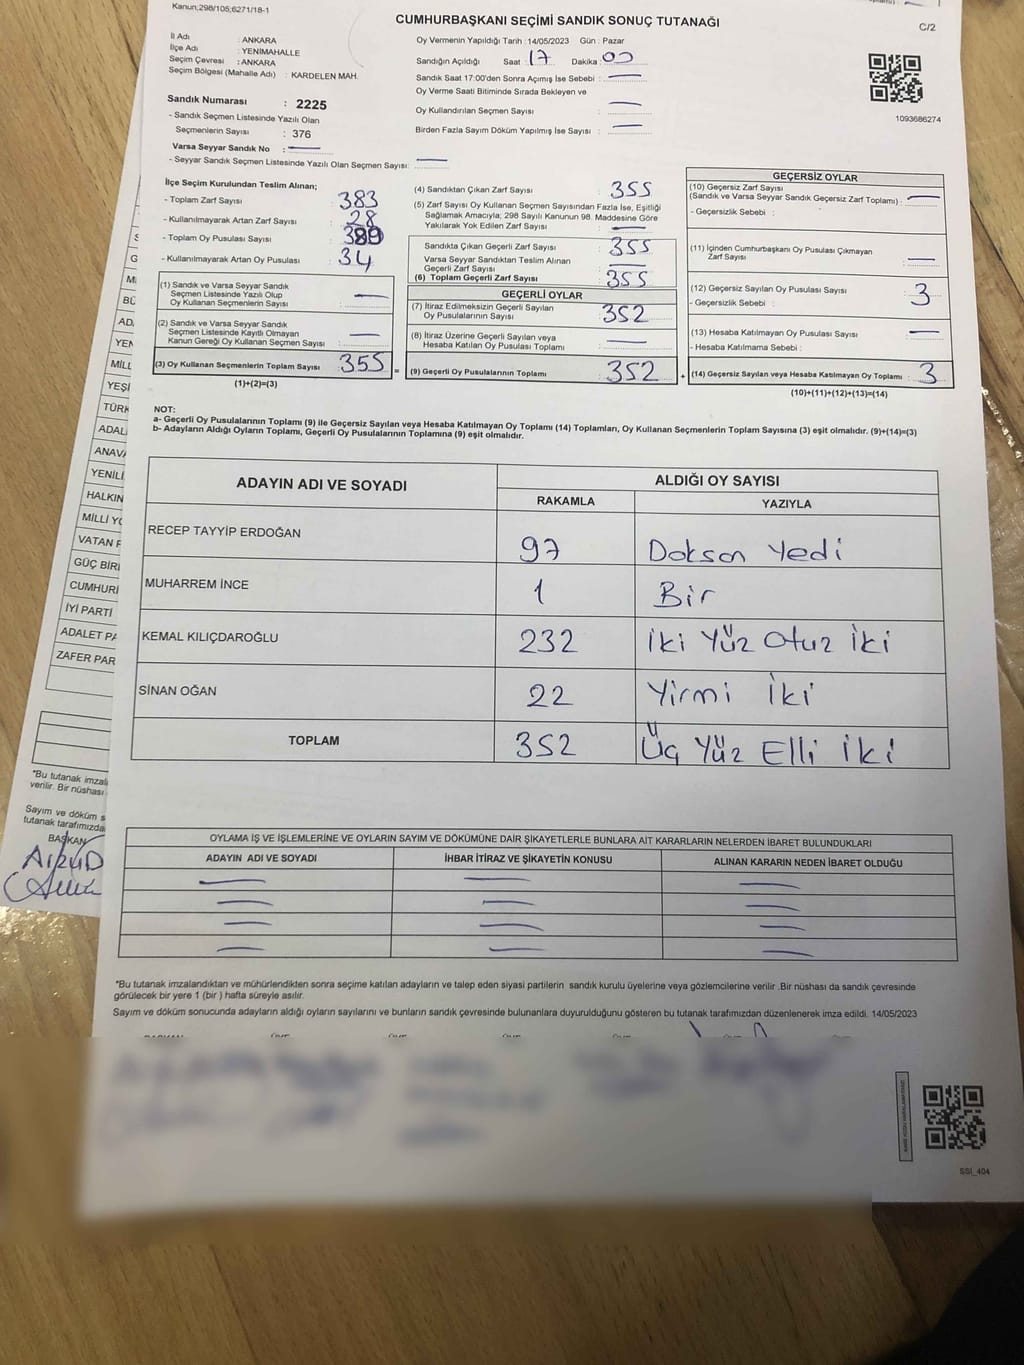 Kanun;298/105;6271/18-1
CUMHURBAŞKANI SEÇİMİ SANDIK SONUÇ TUTANAĞI
C/2
İl Adı : ANKARA
İlçe Adı : YENİMAHALLE
Seçim Çevresi : ANKARA
Seçim Bölgesi (Mahalle Adı) : KARDELEN MAH.
Oy Vermenin Yapıldığı Tarih :14/05/2023 Gün : Pazar
Sandığın Açıldığı Saat : 17 Dakika : 00
Sandık Saat 17:00'den Sonra Açımış İse Sebebi : —
Oy Verme Saati Bitiminde Sırada Bekleyen ve
Oy Kullandırılan Seçmen Sayısı : —
Birden Fazla Sayım Döküm Yapılmış İse Sayısı : —
1093686274
Sandık Numarası : 2225
- Sandık Seçmen Listesinde Yazılı Olan
Seçmenlerin Sayısı : 376
Varsa Seyyar Sandık No : —
- Seyyar Sandık Seçmen Listesinde Yazılı Olan Seçmen Sayısı: —
İlçe Seçim Kurulundan Teslim Alınan;
- Toplam Zarf Sayısı : 383
- Kullanılmayarak Artan Zarf Sayısı : 28
- Toplam Oy Pusulası Sayısı : 389
- Kullanılmayarak Artan Oy Pusulası : 34
(1) Sandık ve Varsa Seyyar Sandık
Seçmen Listesinde Yazılı Olup
Oy Kullanan Seçmenlerin Sayısı : —
(2) Sandık ve Varsa Seyyar Sandık
Seçmen Listesinde Kayıtlı Olmayan
Kanun Gereği Oy Kullanan Seçmen Sayısı : —
(3) Oy Kullanan Seçmenlerin Toplam Sayısı : 355 =
(1)+(2)=(3)
(4) Sandıktan Çıkan Zarf Sayısı : 355
(5) Zarf Sayısı Oy Kullanan Seçmen Sayısından Fazla İse, Eşitliği
Sağlamak Amacıyla; 298 Sayılı Kanunun 98. Maddesine Göre
Yakılarak Yok Edilen Zarf Sayısı : —
Sandıkta Çıkan Geçerli Zarf Sayısı : 355
Varsa Seyyar Sandıktan Teslim Alınan
Geçerli Zarf Sayısı : —
(6) Toplam Geçerli Zarf Sayısı : 355
GEÇERLİ OYLAR
(7) İtiraz Edilmeksizin Geçerli Sayılan
Oy Pusulalarının Sayısı : 352
(8) İtiraz Üzerine Geçerli Sayılan veya
Hesaba Katılan Oy Pusulası Toplamı : —
(9) Geçerli Oy Pusulalarının Toplamı : 352 +
GEÇERSİZ OYLAR
(10) Geçersiz Zarf Sayısı
(Sandık ve Varsa Seyyar Sandık Geçersiz Zarf Toplamı) : —
- Geçersizlik Sebebi :
(11) İçinden Cumhurbaşkanı Oy Pusulası Çıkmayan
Zarf Sayısı : —
(12) Geçersiz Sayılan Oy Pusulası Sayısı : 3
- Geçersizlik Sebebi :
(13) Hesaba Katılmayan Oy Pusulası Sayısı : —
- Hesaba Katılmama Sebebi :
(14) Geçersiz Sayılan veya Hesaba Katılmayan Oy Toplamı : 3
(10)+(11)+(12)+(13)=(14)
NOT:
a- Geçerli Oy Pusulalarının Toplamı (9) ile Geçersiz Sayılan veya Hesaba Katılmayan Oy Toplamı (14) Toplamları, Oy Kullanan Seçmenlerin Toplam Sayısına (3) eşit olmalıdır. (9)+(14)=(3)
b- Adayların Aldığı Oyların Toplamı, Geçerli Oy Pusulalarının Toplamına (9) eşit olmalıdır.
ADAYIN ADI VE SOYADI ALDIĞI OY SAYISI
RAKAMLA YAZIYLA
RECEP TAYYİP ERDOĞAN 97 Doksan Yedi
MUHARREM İNCE 1 Bir
KEMAL KILIÇDAROĞLU 232 İki Yüz Otuz İki
SİNAN OĞAN 22 Yirmi İki
TOPLAM 352 Üç Yüz Elli İki
OYLAMA İŞ VE İŞLEMLERİNE VE OYLARIN SAYIM VE DÖKÜMÜNE DAİR ŞİKAYETLERLE BUNLARA AİT KARARLARIN NELERDEN İBARET BULUNDUKLARI
ADAYIN ADI VE SOYADI İHBAR İTİRAZ VE ŞİKAYETİN KONUSU ALINAN KARARIN NEDEN İBARET OLDUĞU
— — —
— — —
— — —
— — —
*Bu tutanak imzalandıktan ve mühürlendikten sonra seçime katılan adayların ve talep eden siyasi partilerin sandık kurulu üyelerine veya gözlemcilerine verilir .Bir nüshası da sandık çevresinde
görülecek bir yere 1 (bir ) hafta süreyle asılır.
Sayım ve döküm sonucunda adayların aldığı oyların sayılarını ve bunların sandık çevresinde bulunanlara duyurulduğunu gösteren bu tutanak tarafımızdan düzenlenerek imza edildi. 14/05/2023
SSI_404
YENİLİ
HALKIN
MİLLİ YO
VATAN P
GÜÇ BİRİ
CUMHURİ
İYİ PARTİ
ADALET PA
ZAFER PAR
*Bu tutanak imzala
verilir. Bir nüshası
Sayım ve döküm s
tutanak tarafımızda
BAŞKAN